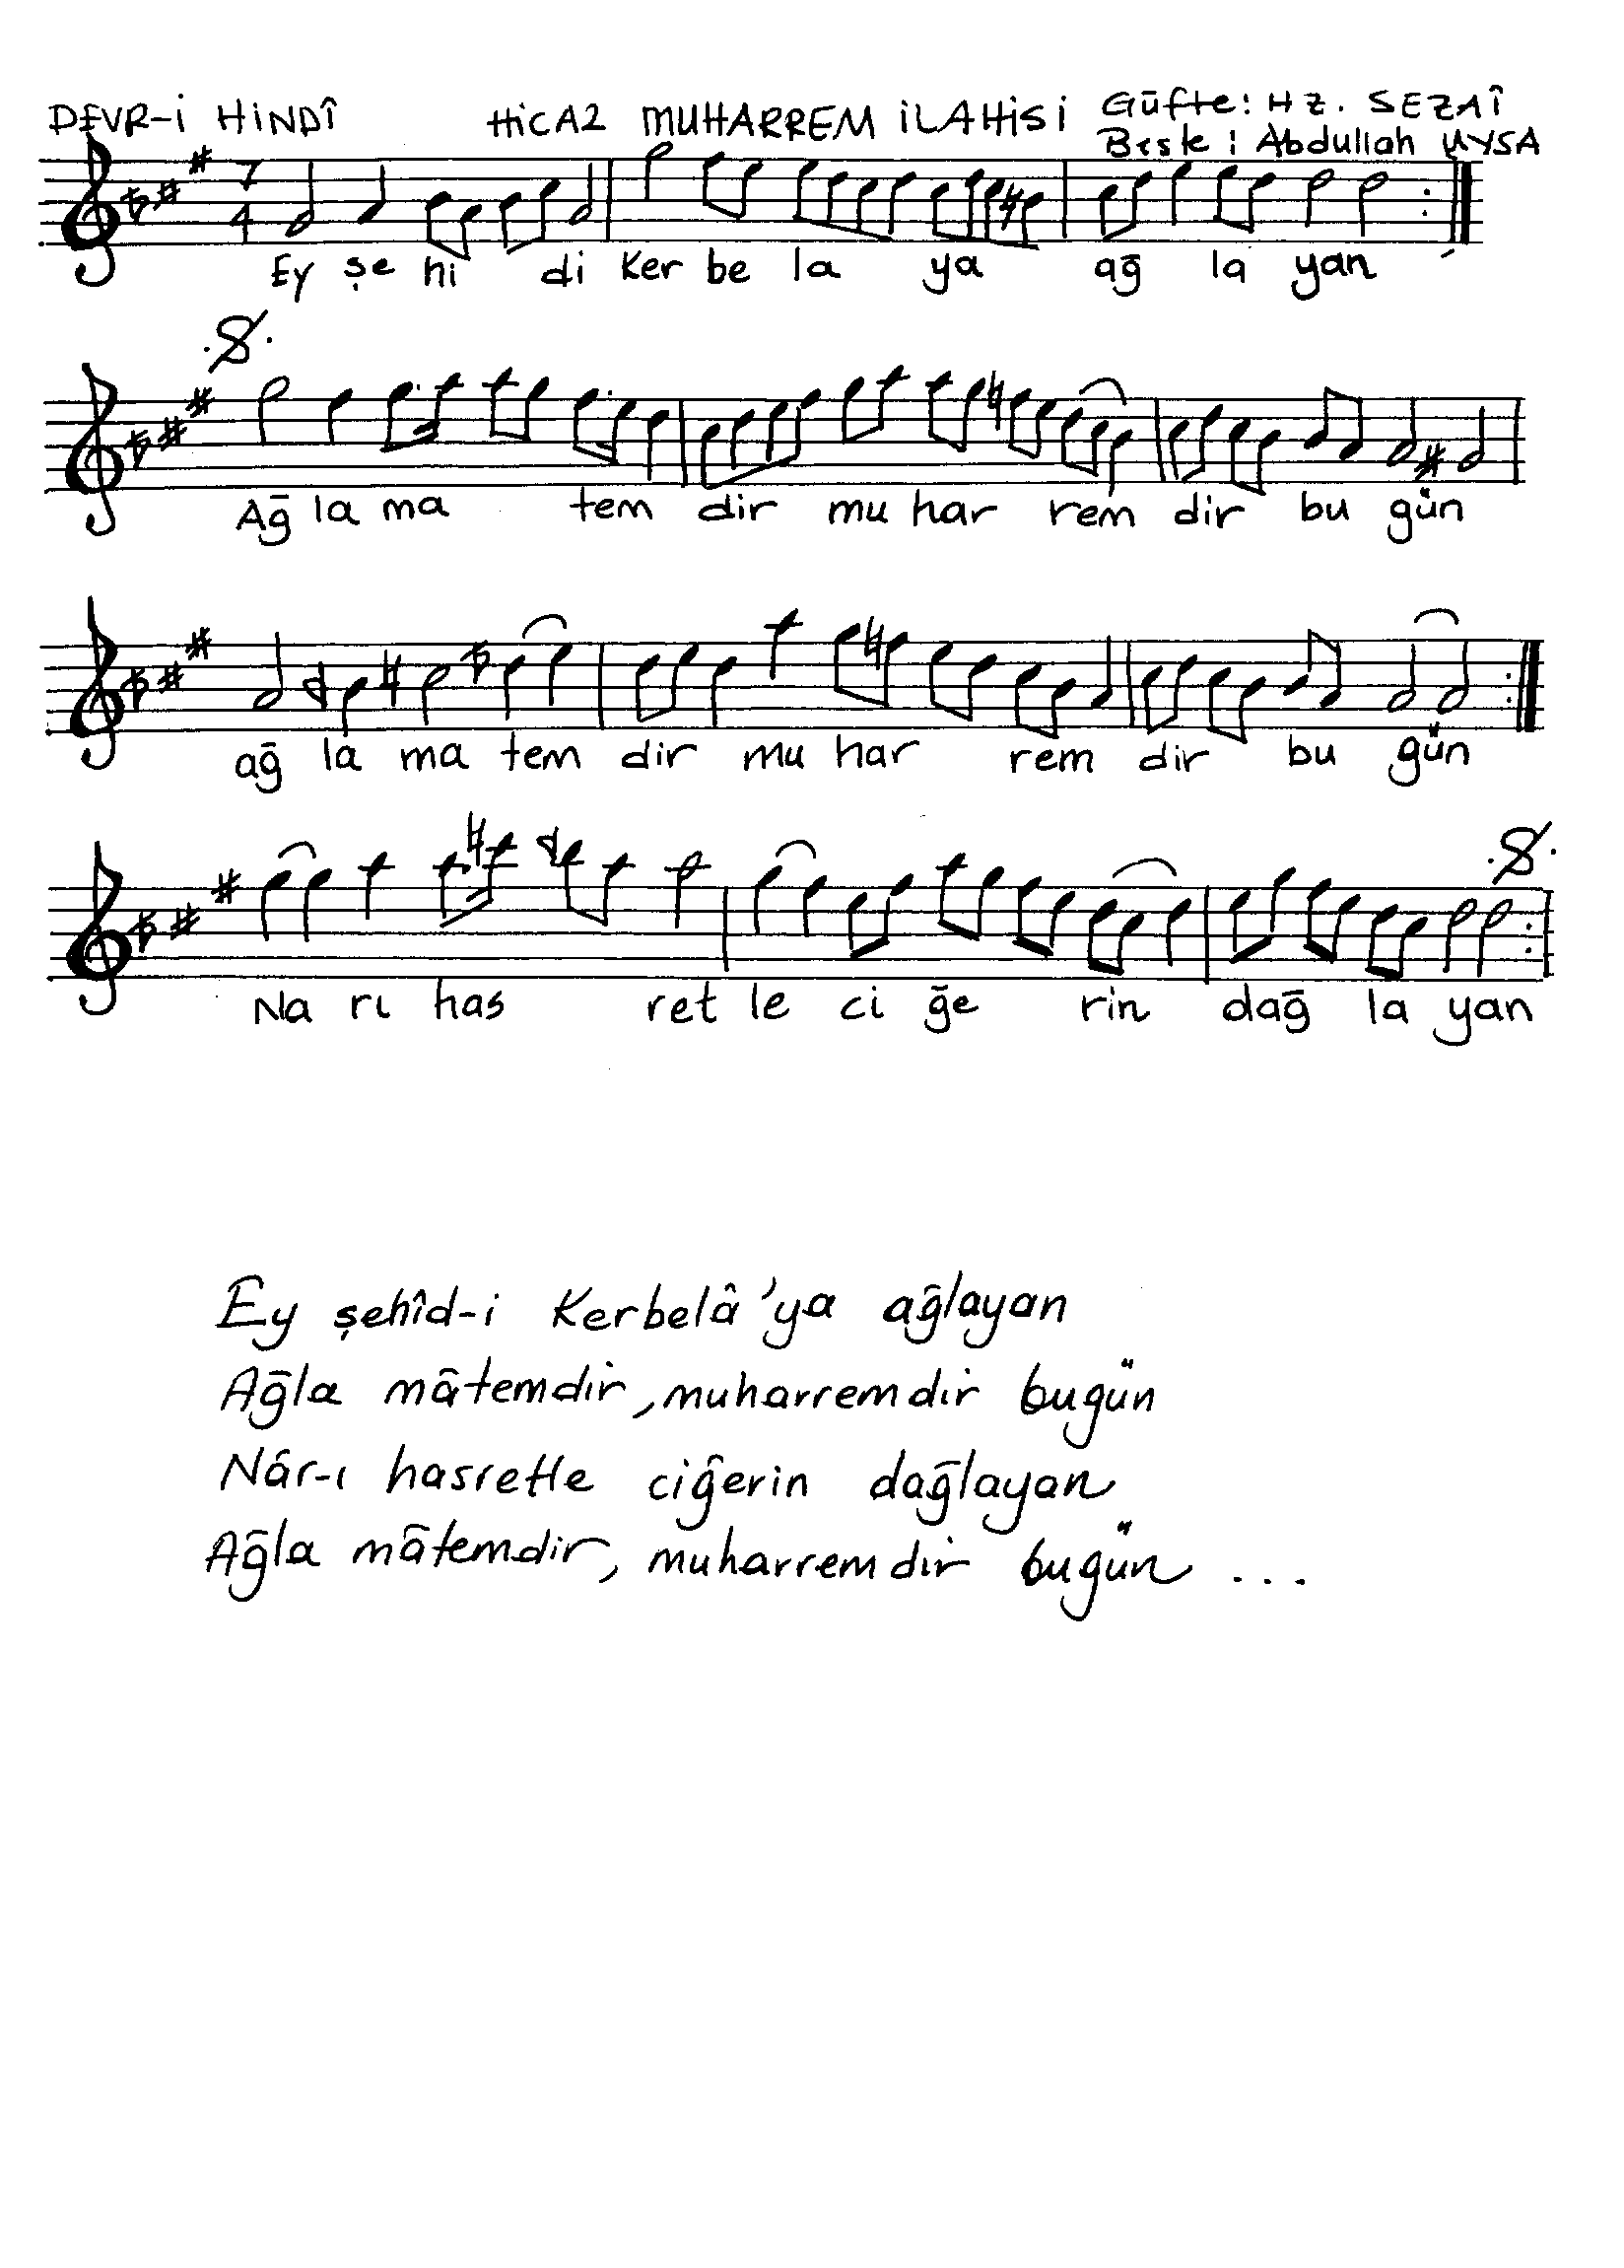 DEVR-İ HİNDÎ HİCAZ MUHARREM İLAHİSİ Güfte: HZ. SEZAÎ
Beste : Abdullah UYSA
7
4
Ey şe hi di Ker be la ya ağ la yan
Ağ la ma tem dir mu har rem dir bu gün
ağ la ma tem dir mu har rem dir bu gün
Na rı has ret le ci ğe rin dağ la yan
Ey şehîd-i Kerbelâ'ya ağlayan
Ağla mâtemdir, muharremdir bugün
Nâr-ı hasretle ciğerin dağlayan
Ağla mâtemdir, muharremdir bugün ...